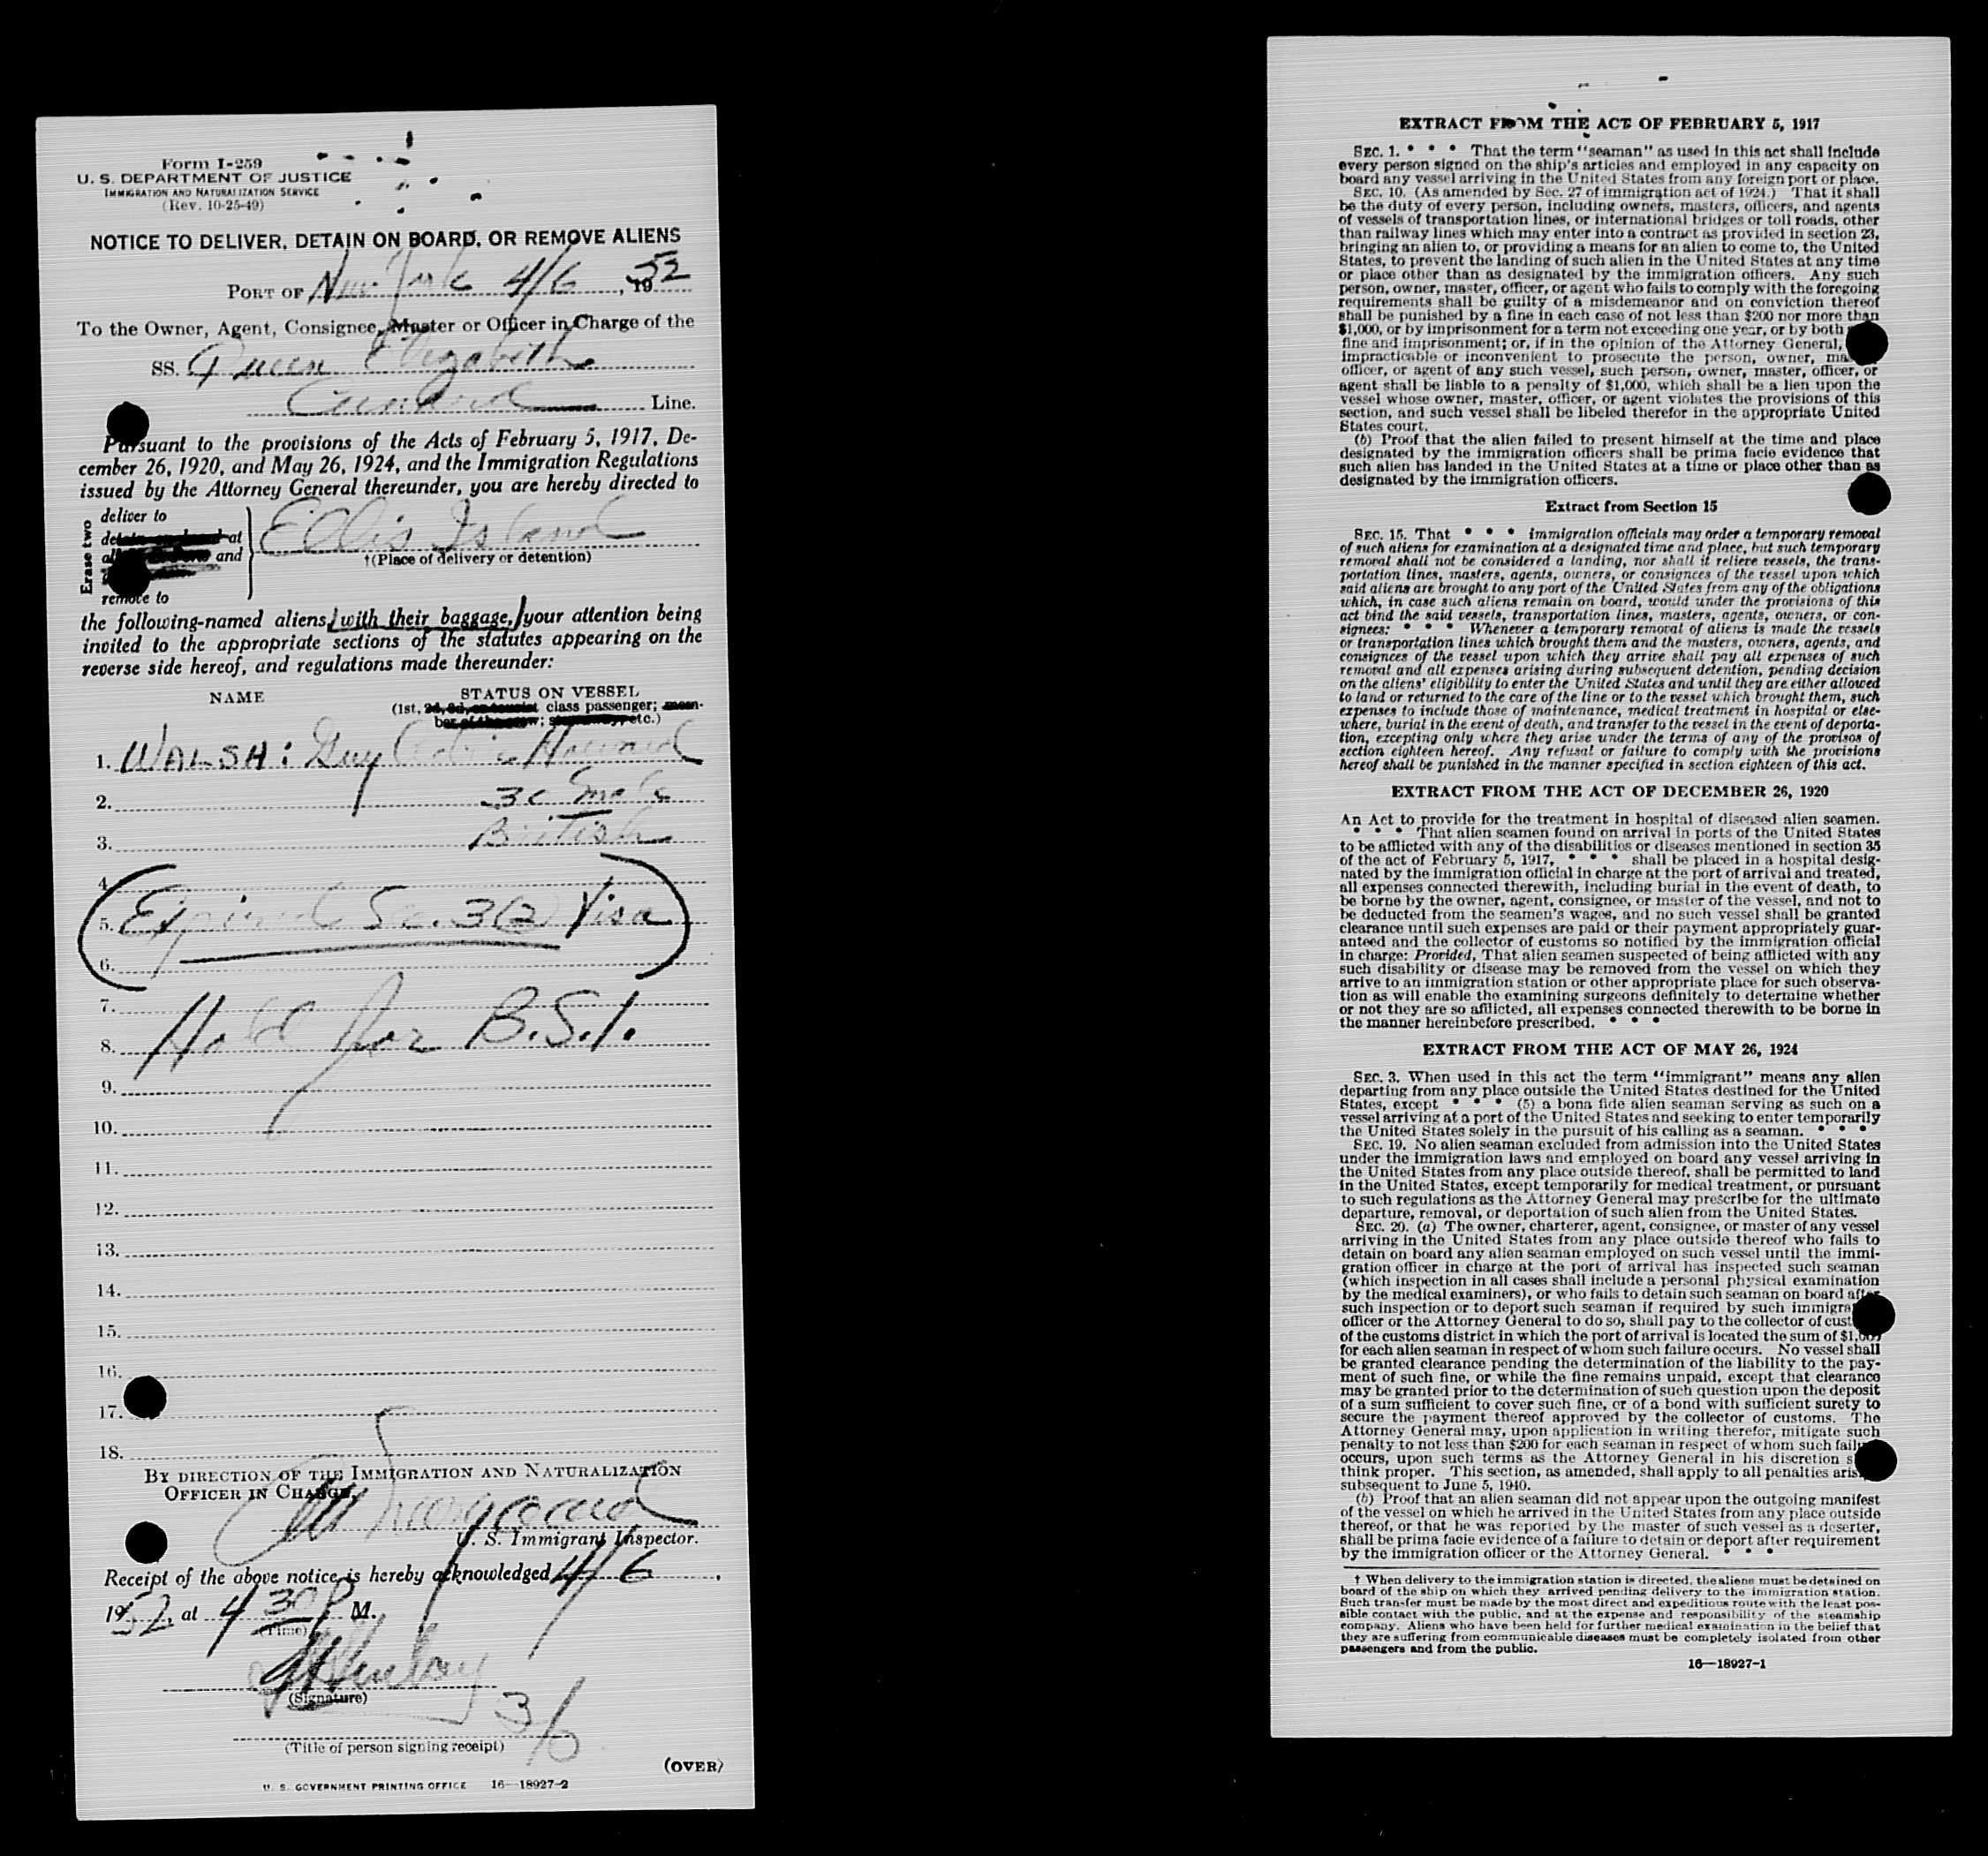 Form I-259
U. S. DEPARTMENT OF JUSTICE
IMMIGRATION AND NATURALIZATION SERVICE
(Rev. 10-25-49)
NOTICE TO DELIVER, DETAIN ON BOARD, OR REMOVE ALIENS
PORT OF New York 4/6, 1952
To the Owner, Agent, Consignee, Master or Officer in Charge of the
SS. Queen Elizabeth
Cunard Line.
Pursuant to the provisions of the Acts of February 5, 1917, De-
cember 26, 1920, and May 26, 1924, and the Immigration Regulations
issued by the Attorney General thereunder, you are hereby directed to
Erase two
deliver to
at
and
remove to
Ellis Island
†(Place of delivery or detention)
the following-named aliens, with their baggage, your attention being
invited to the appropriate sections of the statutes appearing on the
reverse side hereof, and regulations made thereunder:
NAME
STATUS ON VESSEL
(1st, 2d, 3d, or tourist class passenger; mem-
ber of the crew; stowaway, etc.)
1. WALSH: Guy Howard
2. 30 Male
3. British
4.
5. Expired Sec. 3(2) Visa
6.
7.
8. Hold for B.S.I.
9.
10.
11.
12.
13.
14.
15.
16.
17.
18.
BY DIRECTION OF THE IMMIGRATION AND NATURALIZATION
OFFICER IN CHARGE,
U. S. Immigrant Inspector.
Receipt of the above notice is hereby acknowledged 4/6,
1952, at 4 30 P. M.
(Time)
(Signature)
3/6
(Title of person signing receipt)
(OVER)
U. S. GOVERNMENT PRINTING OFFICE 16—18927-2
EXTRACT FROM THE ACT OF FEBRUARY 5, 1917
SEC. 1. * * * That the term "seaman" as used in this act shall include
every person signed on the ship's articles and employed in any capacity on
board any vessel arriving in the United States from any foreign port or place.
SEC. 10. (As amended by Sec. 27 of immigration act of 1924.) That it shall
be the duty of every person, including owners, masters, officers, and agents
of vessels of transportation lines, or international bridges or toll roads, other
than railway lines which may enter into a contract as provided in section 23,
bringing an alien to, or providing a means for an alien to come to, the United
States, to prevent the landing of such alien in the United States at any time
or place other than as designated by the immigration officers. Any such
person, owner, master, officer, or agent who fails to comply with the foregoing
requirements shall be guilty of a misdemeanor and on conviction thereof
shall be punished by a fine in each case of not less than $200 nor more than
$1,000, or by imprisonment for a term not exceeding one year, or by both
fine and imprisonment; or, if in the opinion of the Attorney General,
impracticable or inconvenient to prosecute the person, owner, ma
officer, or agent of any such vessel, such person, owner, master, officer, or
agent shall be liable to a penalty of $1,000, which shall be a lien upon the
vessel whose owner, master, officer, or agent violates the provisions of this
section, and such vessel shall be libeled therefor in the appropriate United
States court.
(b) Proof that the alien failed to present himself at the time and place
designated by the immigration officers shall be prima facie evidence that
such alien has landed in the United States at a time or place other than as
designated by the immigration officers.
Extract from Section 15
SEC. 15. That * * * immigration officials may order a temporary removal
of such aliens for examination at a designated time and place, but such temporary
removal shall not be considered a landing, nor shall it relieve vessels, the trans-
portation lines, masters, agents, owners, or consignees of the vessel upon which
said aliens are brought to any port of the United States from any of the obligations
which, in case such aliens remain on board, would under the provisions of this
act bind the said vessels, transportation lines, masters, agents, owners, or con-
signees: * * * Whenever a temporary removal of aliens is made the vessels
or transportation lines which brought them and the masters, owners, agents, and
consignees of the vessel upon which they arrive shall pay all expenses of such
removal and all expenses arising during subsequent detention, pending decision
on the aliens' eligibility to enter the United States and until they are either allowed
to land or returned to the care of the line or to the vessel which brought them, such
expenses to include those of maintenance, medical treatment in hospital or else-
where, burial in the event of death, and transfer to the vessel in the event of deporta-
tion, excepting only where they arise under the terms of any of the provisos of
section eighteen hereof. Any refusal or failure to comply with the provisions
hereof shall be punished in the manner specified in section eighteen of this act.
EXTRACT FROM THE ACT OF DECEMBER 26, 1920
An Act to provide for the treatment in hospital of diseased alien seamen.
* * * That alien seamen found on arrival in ports of the United States
to be afflicted with any of the disabilities or diseases mentioned in section 35
of the act of February 5, 1917, * * * shall be placed in a hospital desig-
nated by the immigration official in charge at the port of arrival and treated,
all expenses connected therewith, including burial in the event of death, to
be borne by the owner, agent, consignee, or master of the vessel, and not to
be deducted from the seamen's wages, and no such vessel shall be granted
clearance until such expenses are paid or their payment appropriately guar-
anteed and the collector of customs so notified by the immigration official
in charge: Provided, That alien seamen suspected of being afflicted with any
such disability or disease may be removed from the vessel on which they
arrive to an immigration station or other appropriate place for such observa-
tion as will enable the examining surgeons definitely to determine whether
or not they are so afflicted, all expenses connected therewith to be borne in
the manner hereinbefore prescribed. * * *
EXTRACT FROM THE ACT OF MAY 26, 1924
SEC. 3. When used in this act the term "immigrant" means any alien
departing from any place outside the United States destined for the United
States, except * * * (5) a bona fide alien seaman serving as such on a
vessel arriving at a port of the United States and seeking to enter temporarily
the United States solely in the pursuit of his calling as a seaman. * * *
SEC. 19. No alien seaman excluded from admission into the United States
under the immigration laws and employed on board any vessel arriving in
the United States from any place outside thereof, shall be permitted to land
in the United States, except temporarily for medical treatment, or pursuant
to such regulations as the Attorney General may prescribe for the ultimate
departure, removal, or deportation of such alien from the United States.
SEC. 20. (a) The owner, charterer, agent, consignee, or master of any vessel
arriving in the United States from any place outside thereof who fails to
detain on board any alien seaman employed on such vessel until the immi-
gration officer in charge at the port of arrival has inspected such seaman
(which inspection in all cases shall include a personal physical examination
by the medical examiners), or who fails to detain such seaman on board after
such inspection or to deport such seaman if required by such immigra
officer or the Attorney General to do so, shall pay to the collector of cust
of the customs district in which the port of arrival is located the sum of $1,000
for each alien seaman in respect of whom such failure occurs. No vessel shall
be granted clearance pending the determination of the liability to the pay-
ment of such fine, or while the fine remains unpaid, except that clearance
may be granted prior to the determination of such question upon the deposit
of a sum sufficient to cover such fine, or of a bond with sufficient surety to
secure the payment thereof approved by the collector of customs. The
Attorney General may, upon application in writing therefor, mitigate such
penalty to not less than $200 for each seaman in respect of whom such failu
occurs, upon such terms as the Attorney General in his discretion s
think proper. This section, as amended, shall apply to all penalties aris
subsequent to June 5, 1940.
(b) Proof that an alien seaman did not appear upon the outgoing manifest
of the vessel on which he arrived in the United States from any place outside
thereof, or that he was reported by the master of such vessel as a deserter,
shall be prima facie evidence of a failure to detain or deport after requirement
by the immigration officer or the Attorney General. * * *
† When delivery to the immigration station is directed, the aliens must be detained on
board of the ship on which they arrived pending delivery to the immigration station.
Such transfer must be made by the most direct and expeditious route with the least pos-
sible contact with the public, and at the expense and responsibility of the steamship
company. Aliens who have been held for further medical examination in the belief that
they are suffering from communicable diseases must be completely isolated from other
passengers and from the public.
16—18927-1